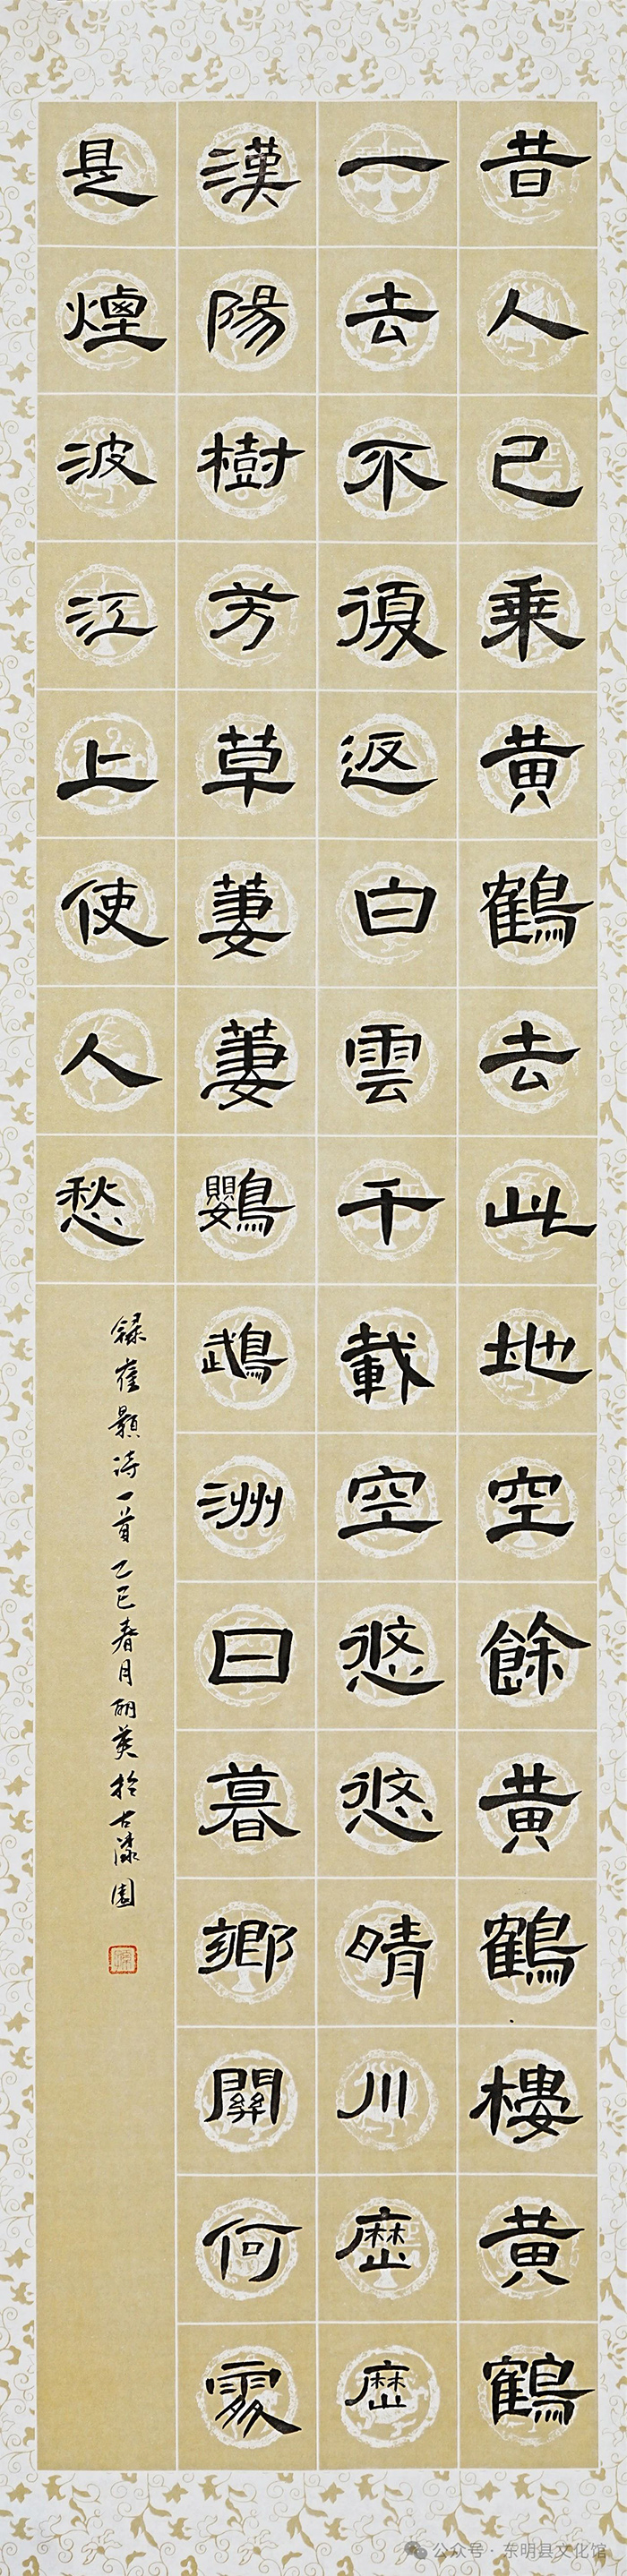 昔人已乘黄鶴去此地空餘黄鶴樓黄鶴
一去不復返白雲千載空悠悠晴川歷歷
漢陽樹芳草萋萋鸚鵡洲日暮鄉關何處
是煙波江上使人愁
錄崔顥诗一首乙巳春月英於古漆園
公众号 · 东明县文化馆